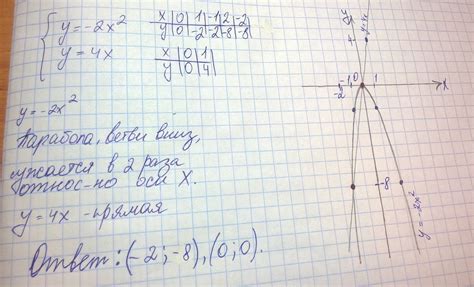 y=-2x²
y=4x
x|0|1|-1|2|-2
y|0|-2|-2|-8|-8
x|0|1
y|0|4
y=-2x²
Парабола, ветви вниз,
сужается в 2 раза
относ-но оси X.
y=4x -прямая
Ответ: (-2;-8), (0;0).
y
4
y=4x
-1 0 1 X
-2
-8
y=-2x²